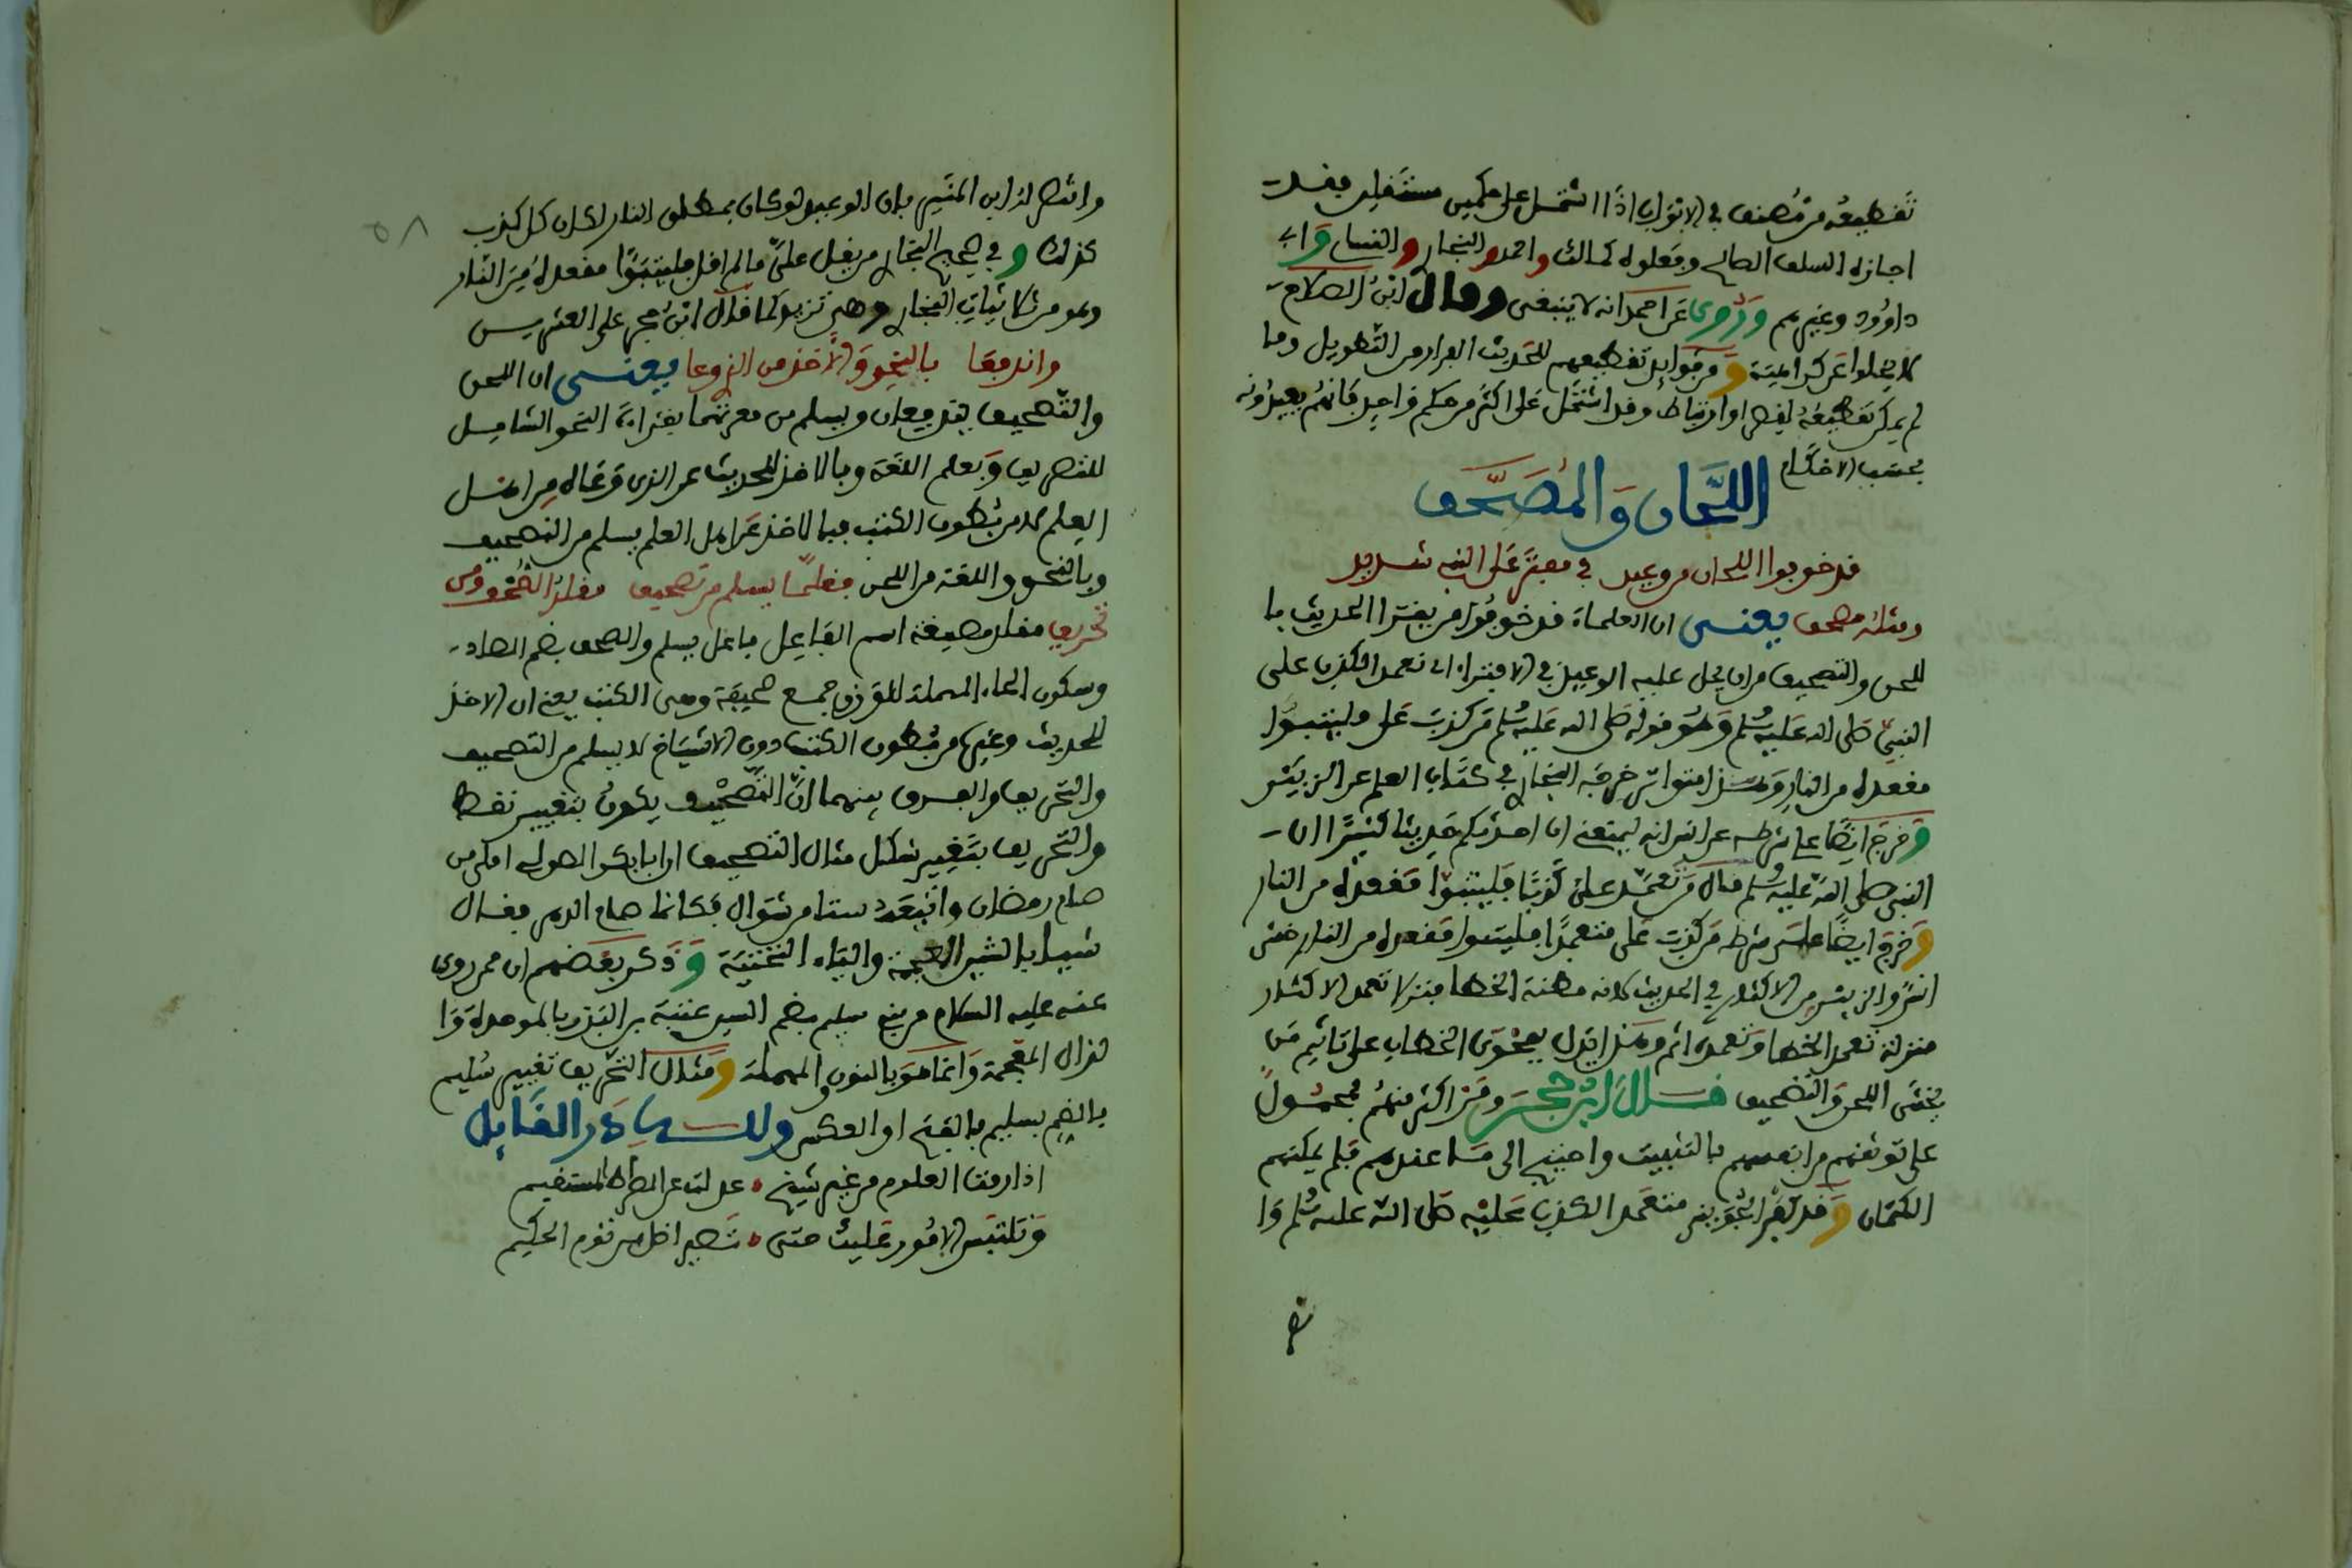 تقطيعه من مصنف في الابواب اذا اشتمل على حكمين مستقلين فقد
اجازه السلف الصالح وفعلوه كمالك واحمد والبخاري والنساي وابي
داوود وغيرهم وروي عن احمد انه لا ينبغي وقال ابن الصلاح
لا يخلوا عن كراهية ومن فوايد تقطيعهم للحديث الفرار من التطويل وما
لم يمكن تقطيعه لقصر او ارتباط وقد اشتمل على اكثر من حكم واحد فانهم يعيدونه
بحسب الاحكام
اللحان والمصحف
قد خوفوا اللحان من وعيد في مفتر على النبي شديد
ومثله مصحف يعنى ان العلماء قد خوفوا من يقرا الحديث با
للحن والتصحيف من ان يحل عليه الوعيد في الافتراء اي تعمد الكذب على
النبي صلى الله عليه وسلم وهو قوله صلى الله عليه وسلم من كذب علي وليتبوا
مقعده من النار وهذا متواتر خرجه البخاري في كتاب العلم عن الزبير
وخرج ايضا على شرطه عن انس انه ليمنعني ان احدثكم حديثا كثيرا ان
النبي صلى الله عليه وسلم قال من تعمد علي كذبا فليتبوا مقعده من النار
وخرج ايضا على شرطه من كذب علي متعمدا فليتبوا مقعده من النار خشى
انس والزبير من الاكثار في الحديث لانه مظنة الخطا فنزلا تعمد الاكثار
منزلة تعمد الخطا وتعمده اثم وهذا يدل بفحوى الخطاب على تاثيم من
يخشى اللحن والتصحيف قال ابن حجر ومن اكثر منهم فمحمول
على توثقهم من انفسهم بالتثبيت واحتيج الى ما عندهم فلم يمكنهم
الكتمان وقد كفر الجويني متعمد الكذب عليه صلى الله عليه وسلم وا
نتص
٥٨
وانتصر له ابن المنير بان الوعيد لو كان بمطلق النار لكان كل كذب
كذلك وفي صحيح البخاري من يقل علي ما لم اقل فليتبوا مقعده من النار
وهو من ثلاثيات البخاري وهى تزيد كما قال ابن حجر على العشرين
واندفعا بالنحو والاخذ من الذ وعا يعنى ان اللحن
والتصحيف يندفعان ويسلم من معرتهما بقراءة النحو الشامل
للتصريف وبعلم اللغة وبالاخذ للحديث عن الذى وعاه من اهل
العلم لا من بطون الكتب فبالاخذ عن اهل العلم يسلم من التصحيف
وبالنحو واللغة من اللحن فقلما يسلم من تصحيف مقلد الصحف ومن
تحريف مقلد صيغة اسم الفاعل فاعل يسلم والصحف بضم الصاد
وسكون الحاء المهملة للوزن جمع صحيفة وهى الكتب يعني ان الاخذ
للحديث وغيره من بطون الكتب دون الاشياخ لا يسلم من التصحيف
والتحريف والفرق بينهما ان التصحيف يكون بتغيير نقط
والتحريف بتغيير شكل مثال التصحيف ان ابا بكر الصولي املى من
صام رمضان واتبعه ستا من شوال فكانما صام الدهر فقال
شيئا بالشين المعجمة والياء التحتية وذكر بعضهم ان ممن روى
عنه عليه السلام من بني سليم بضم السين عتبة بن البذر بالموحدة وا
لذال المعجمة وانما هو بالنون والمهملة ومثال التحريف تغيير سليم
بالضم بسليم بالفتح او العكس ولله در القايل
اذا رمت العلوم من غير شيخ عدلت عن الصراط المستقيم
وتلتبس الامور عليك حتى تصير اضل من توم الحكيم